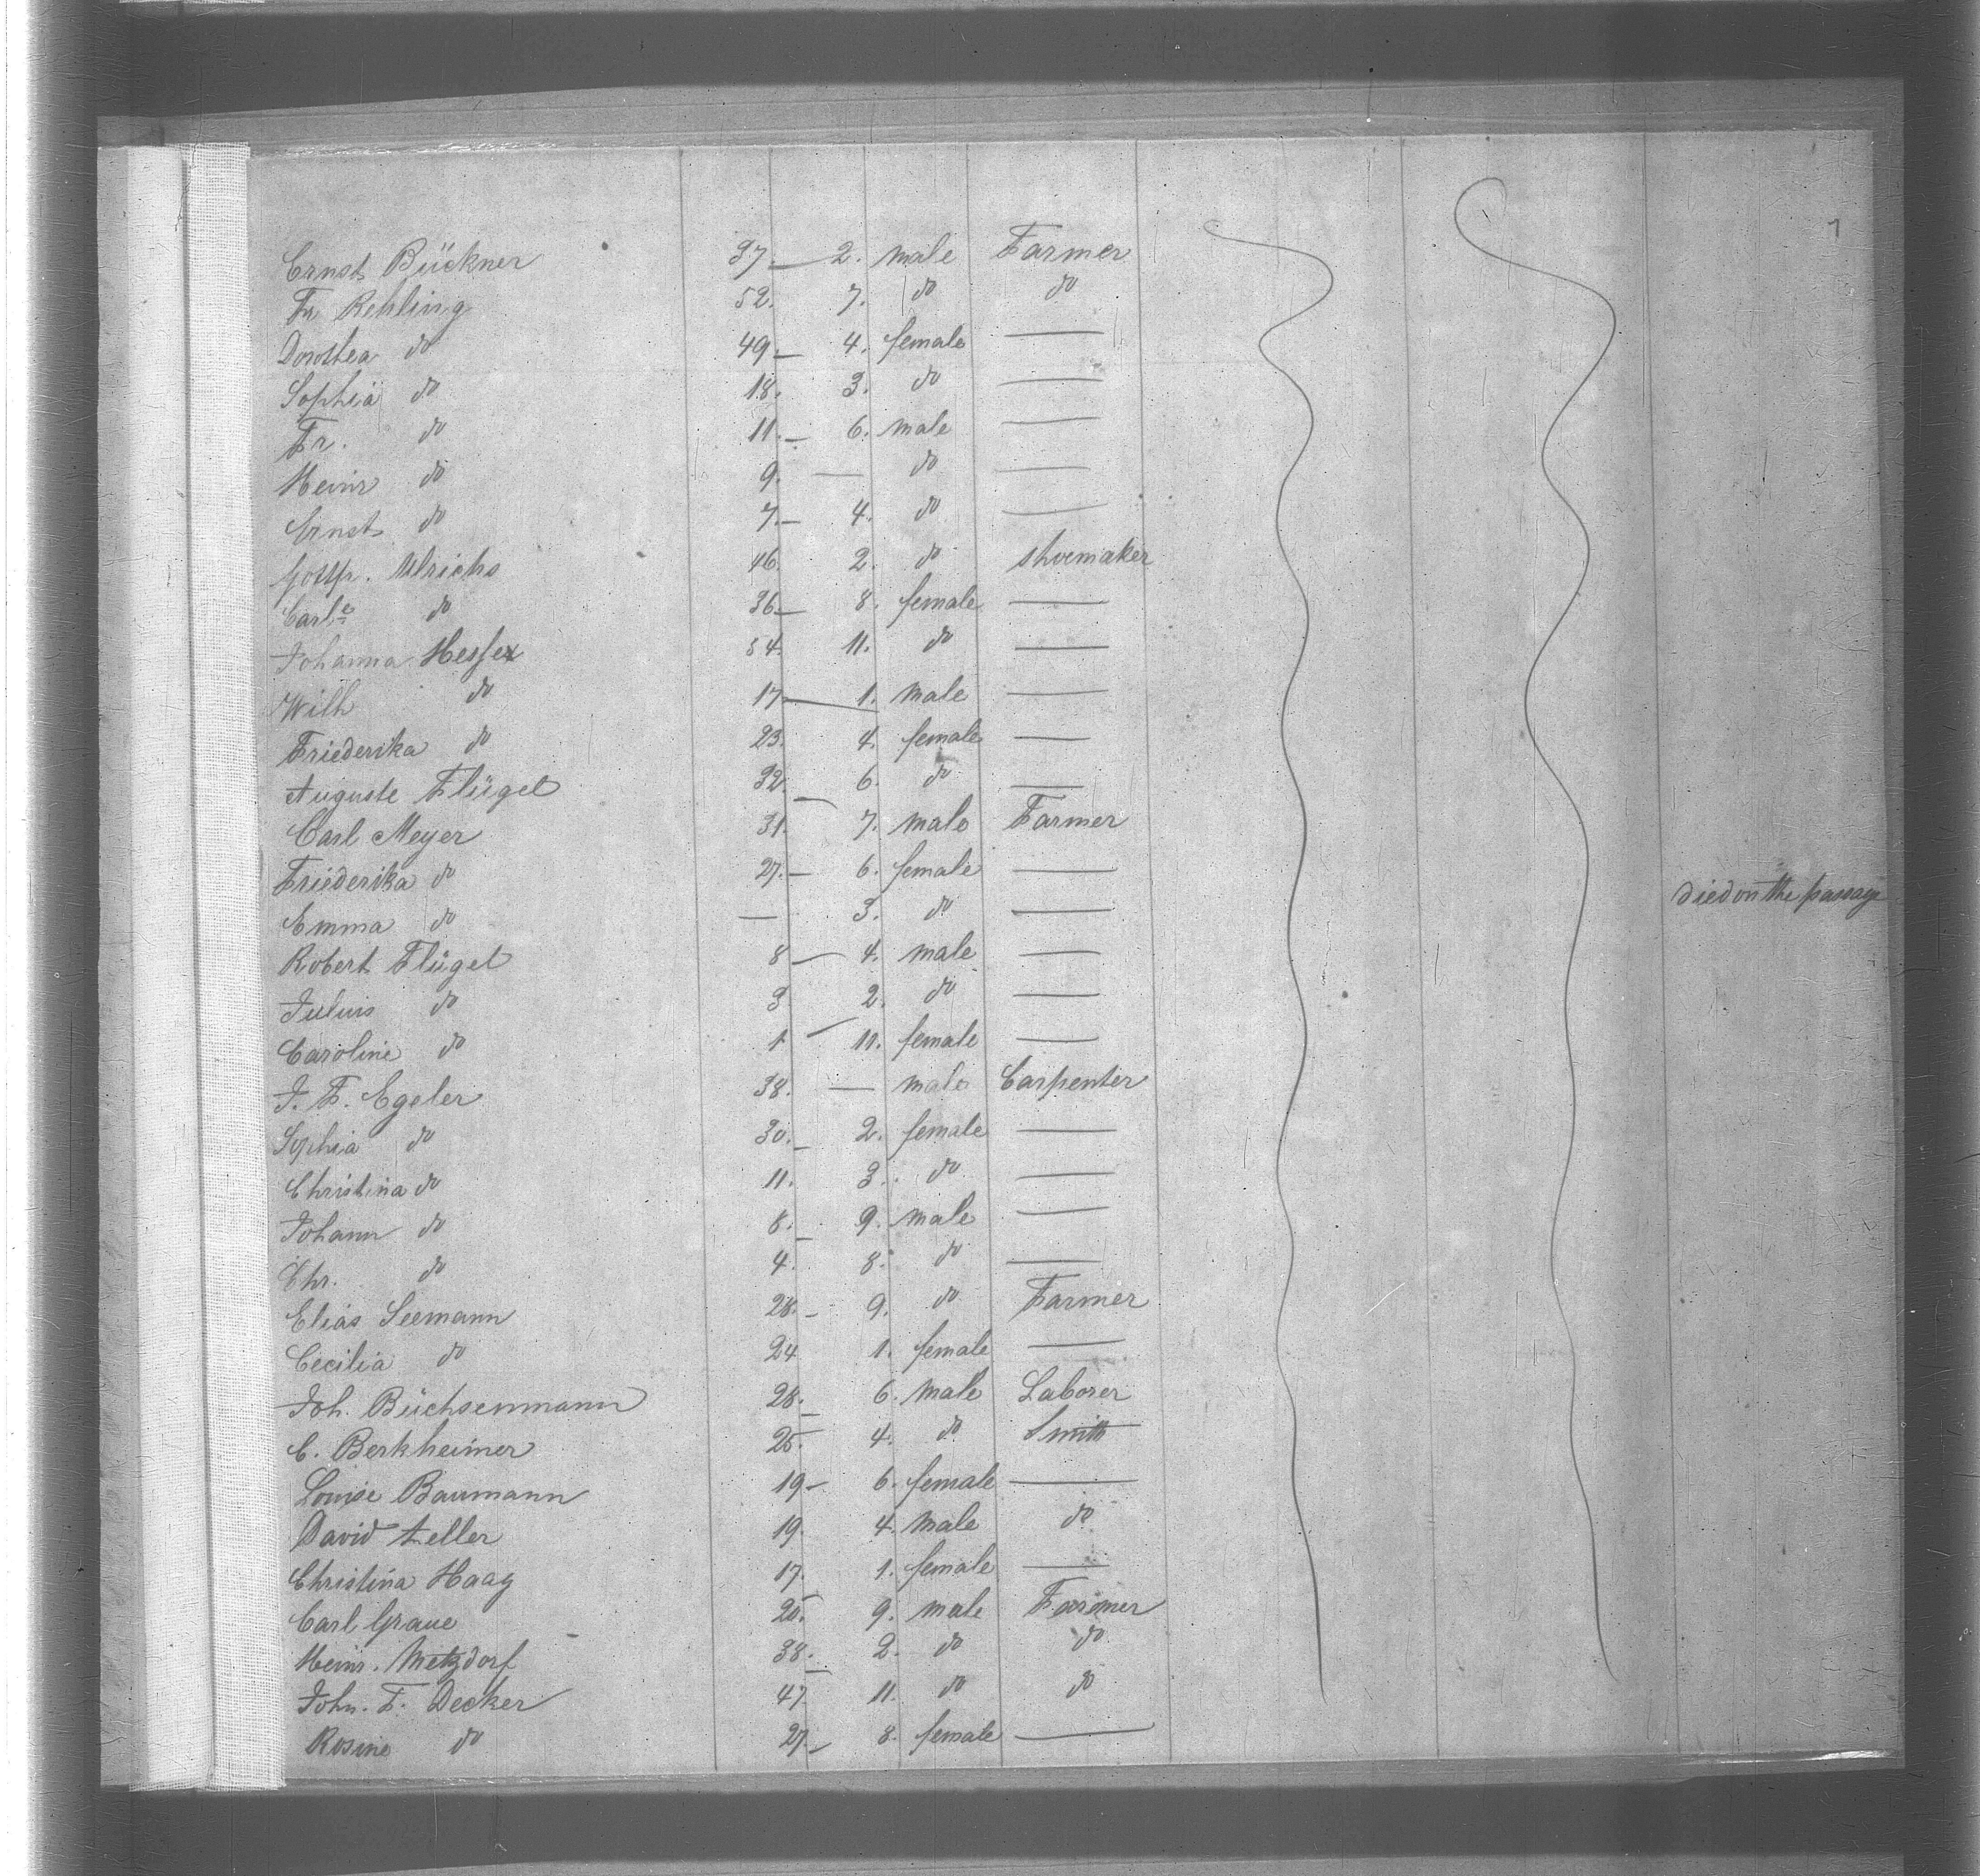 7
Ernst Bückner 37. — 2. male Farmer
Fr. Rehling 52. 7. do do
Dorothea do 49. — 4. female —
Sophia do 18. 3. do —
Fr. do 11. — 6. male —
Heinr do 9. — do —
Ernst do 7. — 4. do —
Gottfr. Ulrichs 46. 2. do shoemaker
Carle do 36 — 8. female —
Johanna Hesse 54. 11. do —
Wilh do 17 — 1. male —
Friederika do 23. 4. female —
Auguste Flügel 32. 6. do —
Carl Meyer 31. — 7. male Farmer
Friederika do 27. — 6. female —
Emma do — 3. do — died on the passage
Robert Flügel 8 — 4. male —
Julius do 3 2. do —
Caroline do 1 — 11. female —
J. F. Egeler 38. — male Carpenter
Sophia do 30. — 2. female —
Christina do 11. 3. do —
Johann do 8. — 9. male —
Chr. do 4. 8. do —
Elias Seemann 28. — 9. do Farmer
Cecilia do 24 1. female —
Joh. Büchsenmann 28. — 6. male Laborer
C. Berkheimer 25. 4. do Smith
Louise Baumann 19 — 6. female —
David Zeller 19. 4. male do
Christina Haag 17. 1. female —
Carl Graue 25. 9. male Farmer
Heinr. Metzdorf 38. — 2. do do
Joh. F. Decker 47. 11. do do
Rosine do 27. — 8. female —